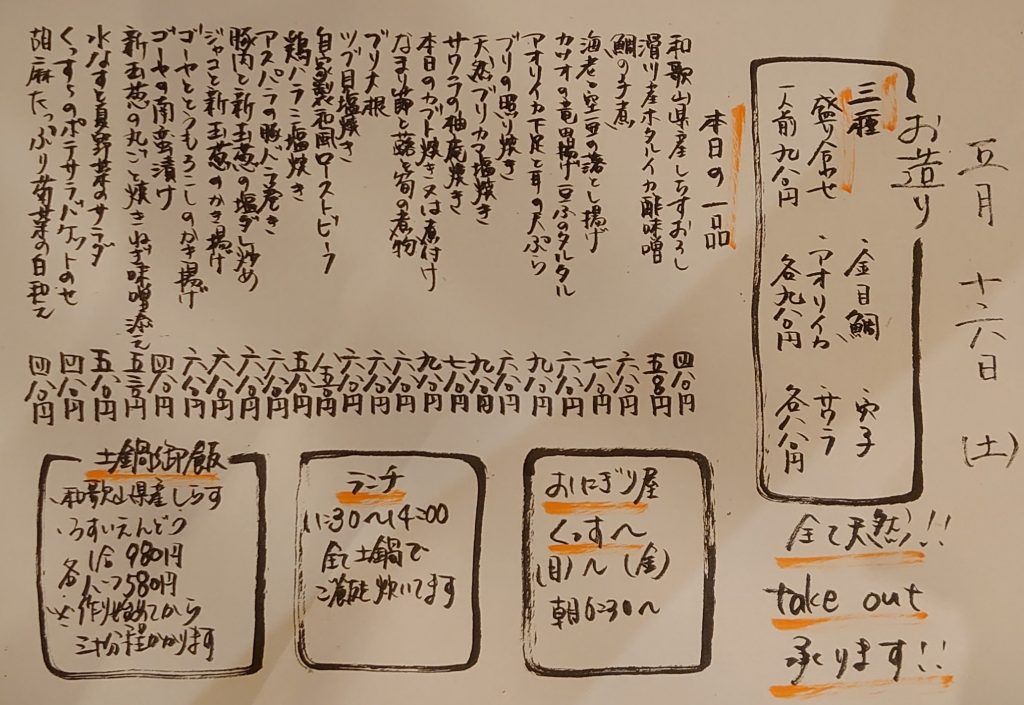 五月 十六日 (土)
お造り
三種
盛り合せ
一人前 九八〇円
金目鯛 穴子
アオリイカ サワラ
各九八〇円 各六八〇円
全て天然!!
take out
承ります!!
本日の一品
和歌山県産しらすおろし 四八〇円
滑川産ホタルイカ酢味噌 五八〇円
鯛の子煮 六八〇円
海老と空豆の落とし揚げ 七八〇円
カツオの竜田揚げ 豆ふのタルタル 六八〇円
アオリイカ下足と耳の天ぷら 九八〇円
ブリの照り焼き 六八〇円
天然ブリカマ塩焼き 九八〇円
サワラの柚庵焼き 七八〇円
本日のカブト焼き又は煮付け 九八〇円
なまり節と蕗と筍の煮物 六八〇円
ブリ大根 六八〇円
ツブ貝塩焼き 六八〇円
自家製和風ローストビーフ
鶏ハラミ塩焼き 五八〇円
アスパラの豚バラ巻き 六八〇円
豚肉と新玉葱の塩ダレ炒め 六八〇円
ジャコと新玉葱のかき揚げ 六八〇円
ゴーヤととうもろこしのかき揚げ 六八〇円
ゴーヤの南蛮漬け 四八〇円
新玉葱の丸ごと焼き ねぎ味噌添え
水なすと夏野菜のサラダ 五八〇円
くっすらのポテサラバケットのせ 四八〇円
胡麻たっぷり菊菜の白和え 四八〇円
おにぎり屋
くっす〜
(月)〜(金)
朝6:30〜
ランチ
11:30〜14:00
全て土鍋で
ご飯を炊いてます
土鍋御飯
和歌山県産しらす
うすいえんどう
各 1合 980円
ハーフ580円
※作り始めてから
三十分程かかります